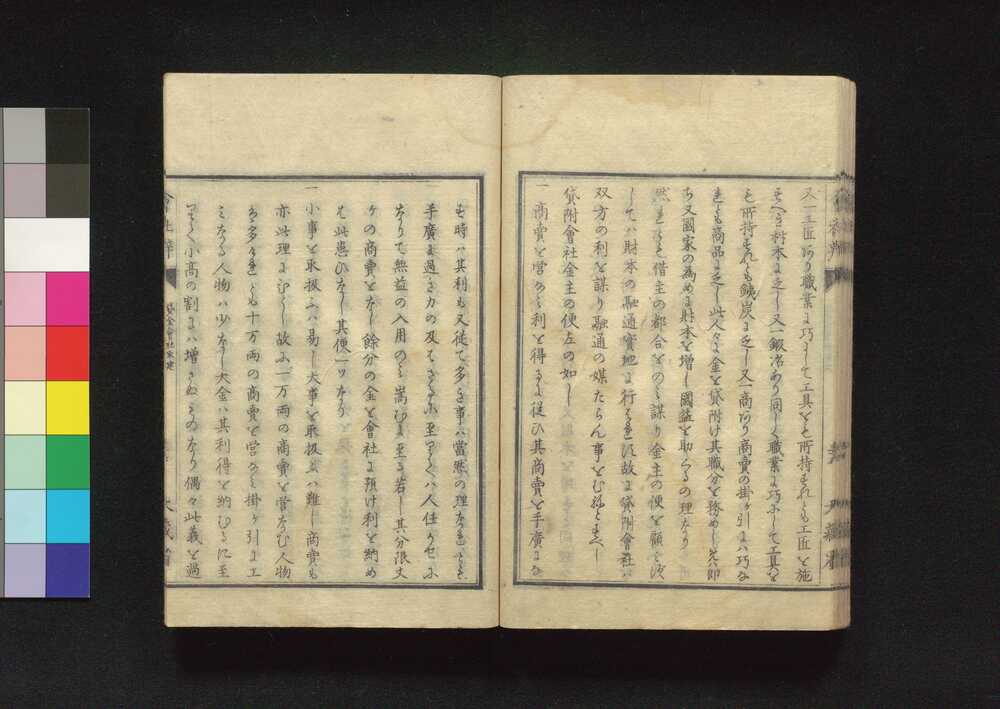 又一工匠あり職業に巧にして工具をも所持すれども工匠を施
すべき材木に乏し又一鍛冶あり同しく職業に巧にして工具を
も所持すれども銕炭に乏し又一商あり商賣の掛ケ引にハ巧な
れども商品に乏し此人々に金を貸附け其職分を務めしむれハ即
ち又國家の為めに財本を増し國益を助くるの理なり
然れども借主の都合をのミ謀り金主の便を顧ミざ
してハ財本の融通實地に行ハれず故に貸附會社ハ
双方の利を謀り融通の媒たらん事をむねとすべし
貸附會社金主の便左の如し
一商賣を営ミて利を得るに従ひ其商賣を手廣にな
す時ハ其利も又従て多き事ハ當然の理なれども
手廣に過き力の及ハざるに至つてハ人任かせに
なりて無益の入用のミ嵩むに至る若し其分限丈
ケの商賣をなし餘分の金を會社に預け利を納め
ば此患ひなし其便一ツなり
一小事を取扱ふハ易し大事を取扱ふハ難し商賣も
亦此理に同し故に一万両の商賣を営なむ人物
ハ多けれども十万両の商賣を営ミて掛ケ引に工
ミなる人物ハ少なし大金ハ其利得を納むるに至
つて小高の割にハ増さぬものなり偶々此義を過
會社辨
貸金會社取建
大藏省